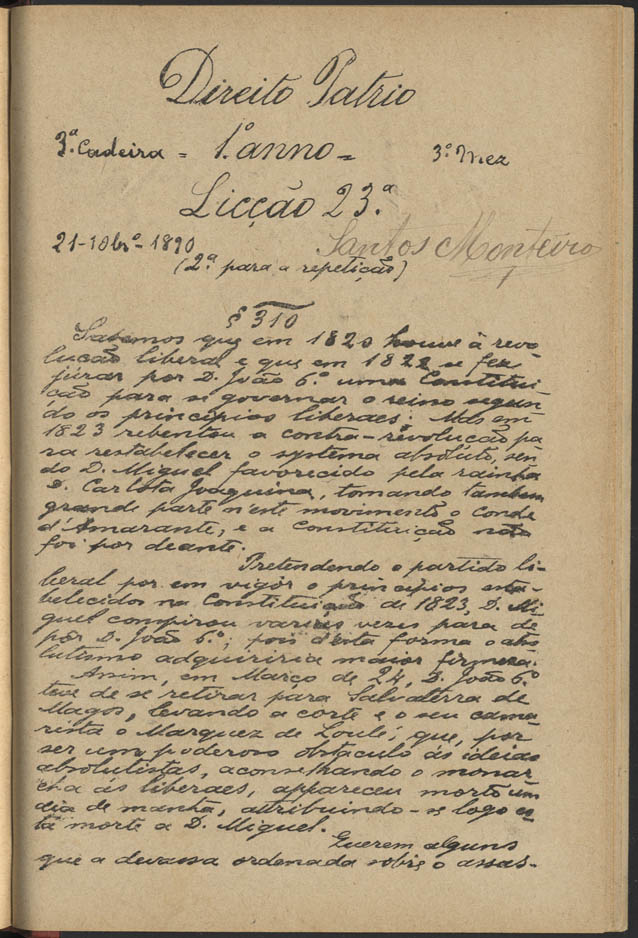 Direito Patrio
3.ª Cadeira = 1.º anno = 3.º mez
Licção 23.ª
21-10br.º-1890 Santos Monteiro
(2.ª para a repetição)
§ 310
Sabemos que em 1820 houve a revo-
lucão liberal e que em 1822 se fez
jurar por D. João 6.º uma Constitui-
ção para se governar o reino segun
do os principios liberaes. Mas em
1823 rebentou a contra-revolução pa
ra restabelecer o systema absoluto, sen
do D. Miguel favorecido pela rainha
D. Carlota Joaquina, tomando tambem
grande parte n'este movimento o Conde
d'Amarante, e a Constituição não
foi por deante.
Pretendendo o partido li-
beral por em vigôr o principios esta-
belecidos na Constituição de 1823, D. Mi
guel conspirou varias vezes para de
pôr D. João 6.º; pois d'esta forma o abso
lutismo adquiriria maior firmeza.
Assim, em Março de 24, D. João 6.º
teve de se retirar para Salvaterra de
Magos, levando a corte e o seu cama
rista o Marquez de Loulé, que, por
ser um poderoso obstaculo ás ideias
absolutistas, aconselhando o monar
cha ás liberaes, appareceu morto um
dia de manhã, attribuindo-se logo es
ta morte a D. Miguel.
Querem alguns
que a devassa ordenada sobre o assas-